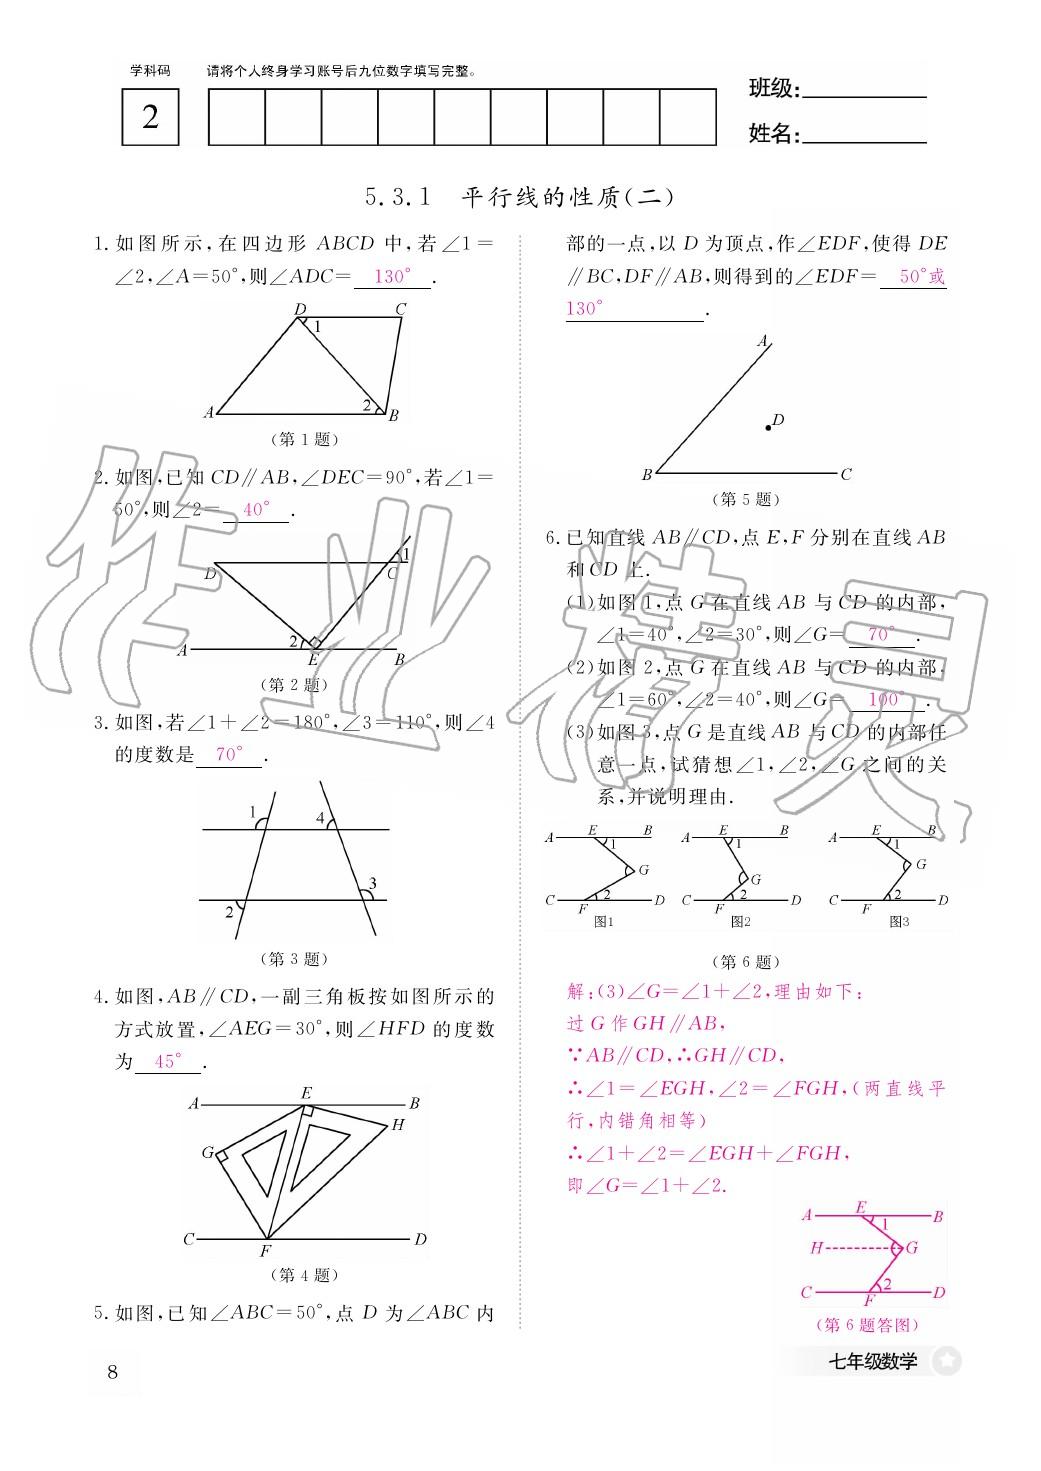 学科码 请将个人终身学习账号后九位数字填写完整。
2
班级:
姓名:
5.3.1 平行线的性质(二)
1. 如图所示,在四边形 ABCD 中,若∠1=
∠2,∠A=50°,则∠ADC= 130° .
D C 1
A 2 B
(第 1 题)
2. 如图,已知 CD∥AB,∠DEC=90°,若∠1=
50°,则∠2= 40° .
D C 1
A 2 E B
(第 2 题)
3. 如图,若∠1+∠2=180°,∠3=110°,则∠4
的度数是 70° .
1 4
2 3
(第 3 题)
4. 如图,AB∥CD,一副三角板按如图所示的
方式放置,∠AEG=30°,则∠HFD 的度数
为 45° .
A E B
G H
C F D
(第 4 题)
5. 如图,已知∠ABC=50°,点 D 为∠ABC 内
部的一点,以 D 为顶点,作∠EDF,使得 DE
∥BC,DF∥AB,则得到的∠EDF= 50°或
130° .
A
D
B C
(第 5 题)
6. 已知直线 AB∥CD,点 E,F 分别在直线 AB
和 CD 上.
(1)如图 1,点 G 在直线 AB 与 CD 的内部,
∠1=40°,∠2=30°,则∠G= 70° .
(2)如图 2,点 G 在直线 AB 与 CD 的内部,
∠1=60°,∠2=40°,则∠G= 100° .
(3)如图 3,点 G 是直线 AB 与 CD 的内部任
意一点,试猜想∠1,∠2,∠G 之间的关
系,并说明理由.
A E B A E B A E B
1 1 1
G G G
C F 2 D C F 2 D C F 2 D
图1 图2 图3
(第 6 题)
解:(3)∠G=∠1+∠2,理由如下:
过 G 作 GH∥AB,
∵AB∥CD,∴GH∥CD,
∴∠1=∠EGH,∠2=∠FGH,(两直线平
行,内错角相等)
∴∠1+∠2=∠EGH+∠FGH,
即∠G=∠1+∠2.
A E B
1
H G
C F 2 D
(第 6 题答图)
8
七年级数学
作业精灵